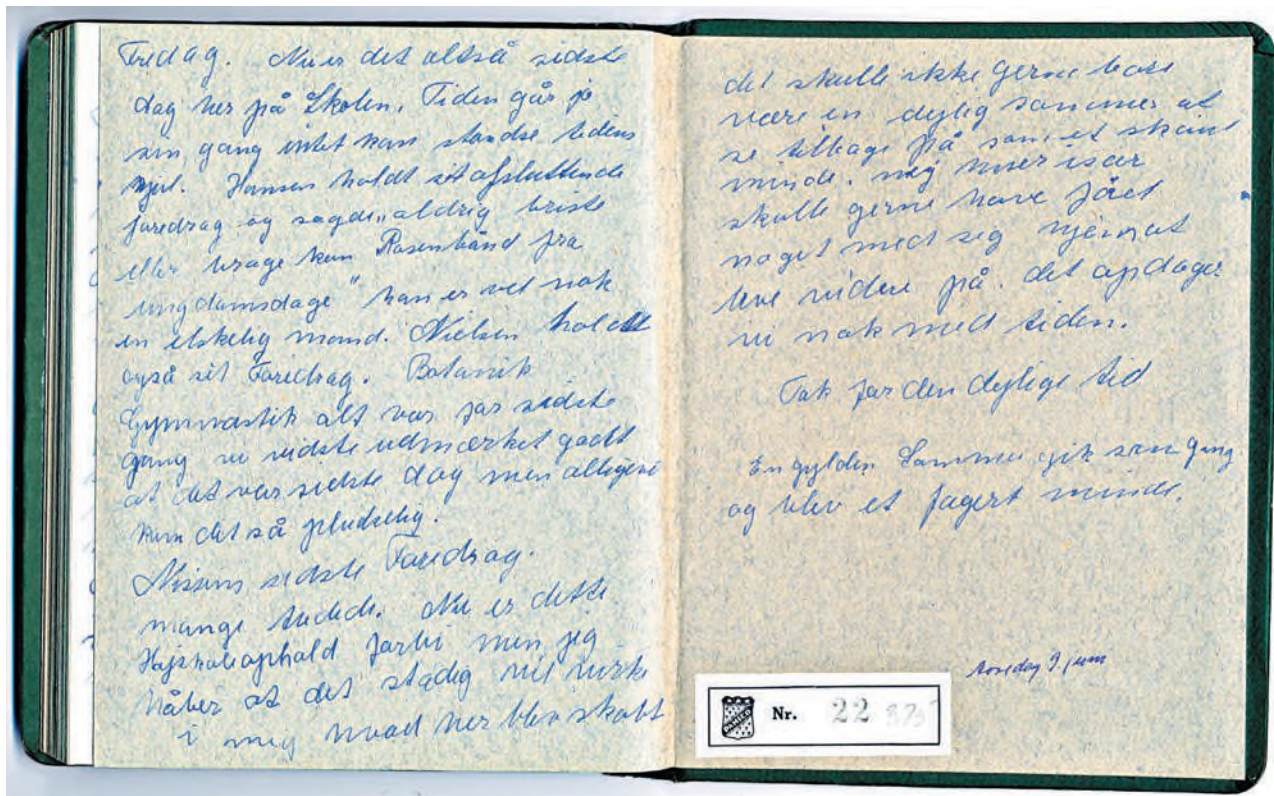 Fredag. Nu er det altså sidste
dag her på Skolen. Tiden går jo
sin gang intet kan standse tidens
hjul. Hansen holdt sit afsluttende
foredrag og sagde „aldrig briste
eller brage kan Rosenbånd fra
ungdomsdage" han er vel nok
en elskelig mand. Nielsen holdt
også sit Foredrag. Botanik
Gymnastik alt var for sidste
gang vi vidste udmærket godt
at det var sidste dag men alligevel
kom det så pludselig.
Nissens sidste Foredrag.
mange tudede. Nu er dette
Højskoleophold forbi men jeg
håber at det stadig vil virke
i mig hvad her blev skabt
det skulle ikke gerne bare
være en dejlig sommer at
se tilbage på som et skønt
minde. nej hver især
skulle gerne have fået
noget med sig hjem at
leve videre på. det opdager
vi nok med tiden.
Tak for den dejlige tid
En gylden Sommer gik sin gang
og blev et fagert minde.
torsdag 9. juni
DANICA
Nr. 22 375